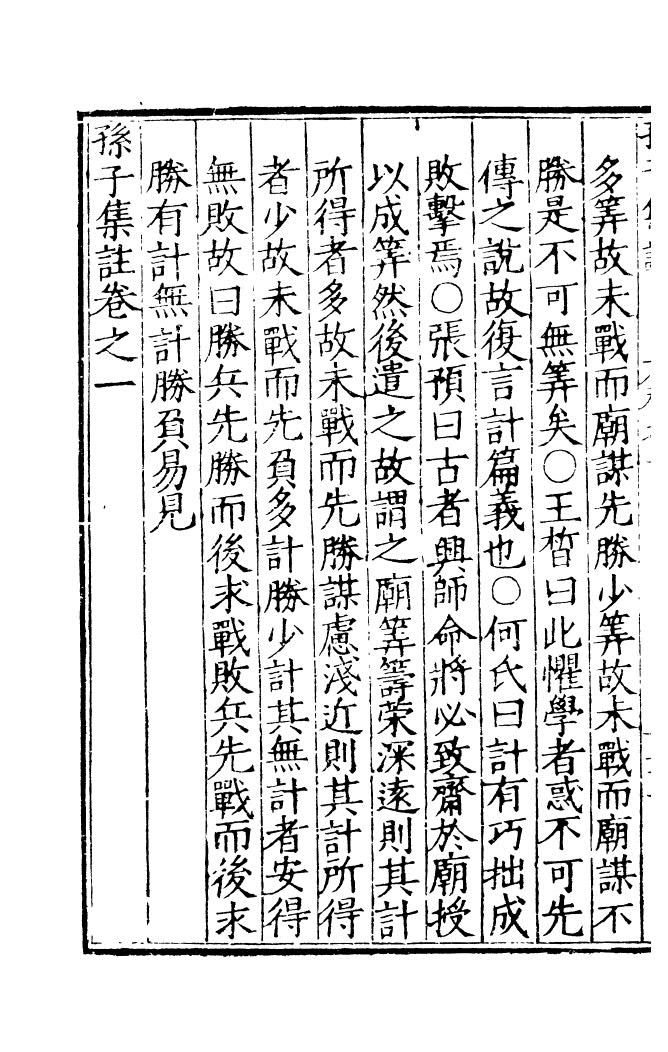 多筭故未戰而廟謀先勝少筭故未戰而廟謀不
勝是不可無筭矣○王晳曰此懼學者惑不可先
傳之說故復言計篇義也○何氏曰計有巧拙成
敗擊焉○張預曰古者興師命將必致齋於廟授
以成筭然後遣之故謂之廟筭籌䇿深遠則其計
所得者多故未戰而先勝謀慮淺近則其計所得
者少故未戰而先負多計勝少計其無計者安得
無敗故曰勝兵先勝而後求戰敗兵先戰而後求
勝有計無計勝負易見
孫子集註卷之一